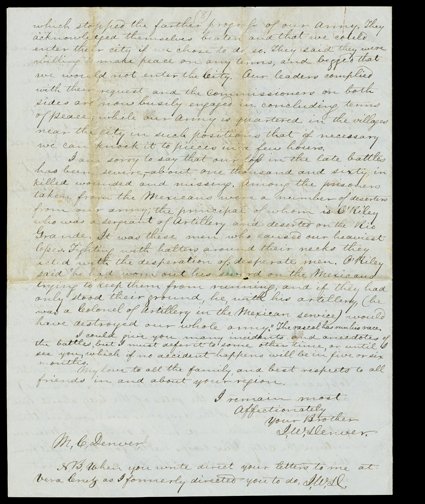 (5)
which stopped the farther progress of our Army. They
acknowledged themselves beaten and that we could
enter their city if we chose to do so. They said they were
willing to make peace on any terms, and begged that
we would not enter the City. Our leaders complied
with their request and the Commissioners on both
sides are now busily engaged in concluding terms
of Peace, while our Army is quartered in the villages
near the city in such positions that if necessary
we can knock it to pieces in a few hours.
I am sorry to say that our loss in the late battles
has been severe, about one thousand and sixty in
killed wounded and missing. Among the prisoners
taken from the Mexicans were a number of deserters
from our army the principal of whom is O'Riley
who was a sergeant of Artillery and deserted on the Rio
Grande. It was these men who caused our heaviest
loss. Fighting with halters around their necks they
acted with the desperation of desperate men. O'Riley
said he had worn out his sword on the Mexicans
trying to keep them from running, and if they had
only stood their ground, he, with his artillery (he
was a Colonel of Artillery in the Mexican service) would
have destroyed our whole army. The rascal has run his race.
I could give you many incidents and anecdotes of
the battles, but I must defer it to some other time, or until I
see you, which if no accident happens will be in five or six
months.
My love to all the family, and best respects to all
friends in and about your region.
I remain most
Affectionately
Your Brother
J. W. Denver.
M. C. Denver
N.B. When you write direct your letters to me at
Vera Cruz as I formerly directed you to do, J.W.D.